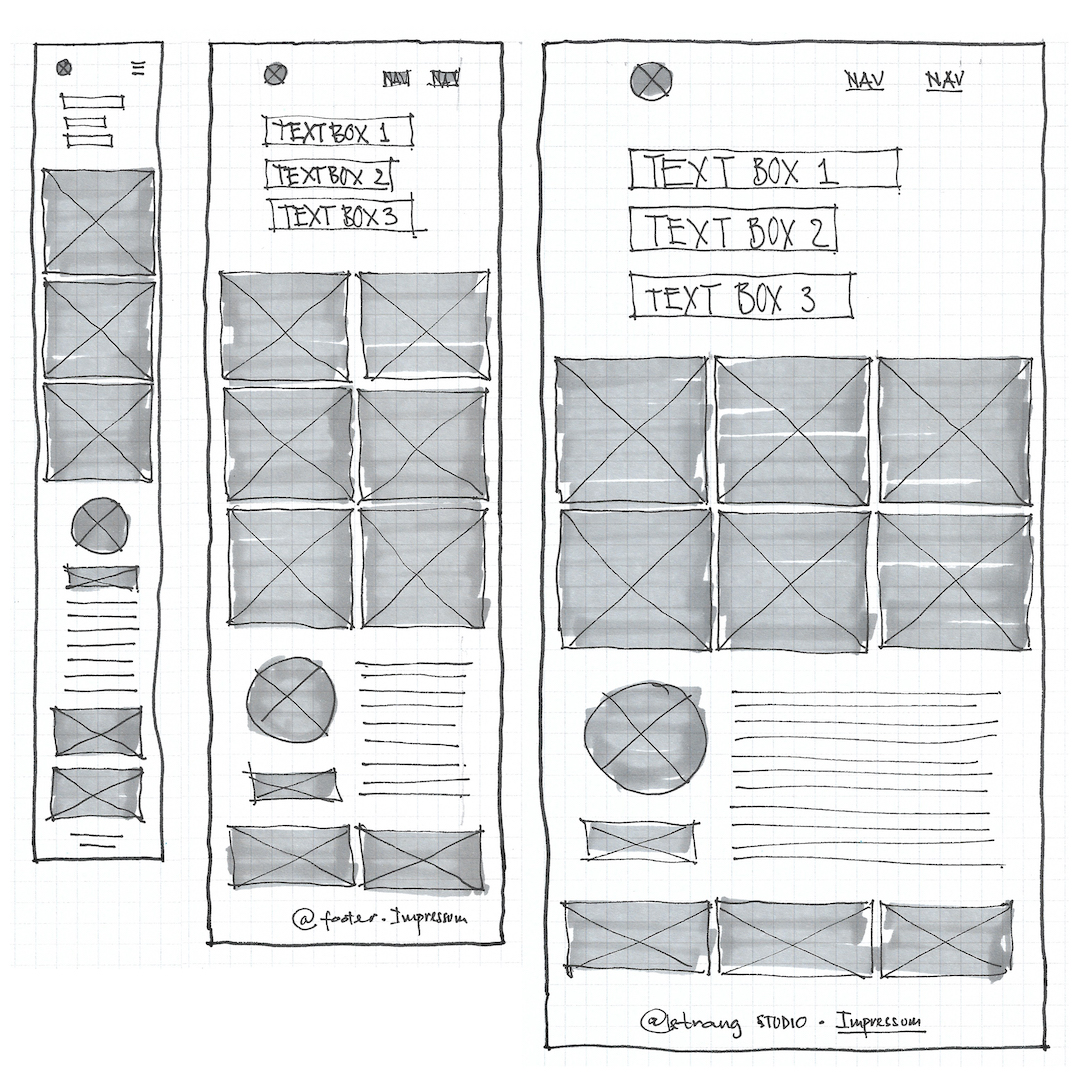 NAV NAV
TEXT BOX 1
TEXT BOX 2
TEXT BOX 3
@footer. Impressum
NAV NAV
TEXT BOX 1
TEXT BOX 2
TEXT BOX 3
STUDIO . Impressum